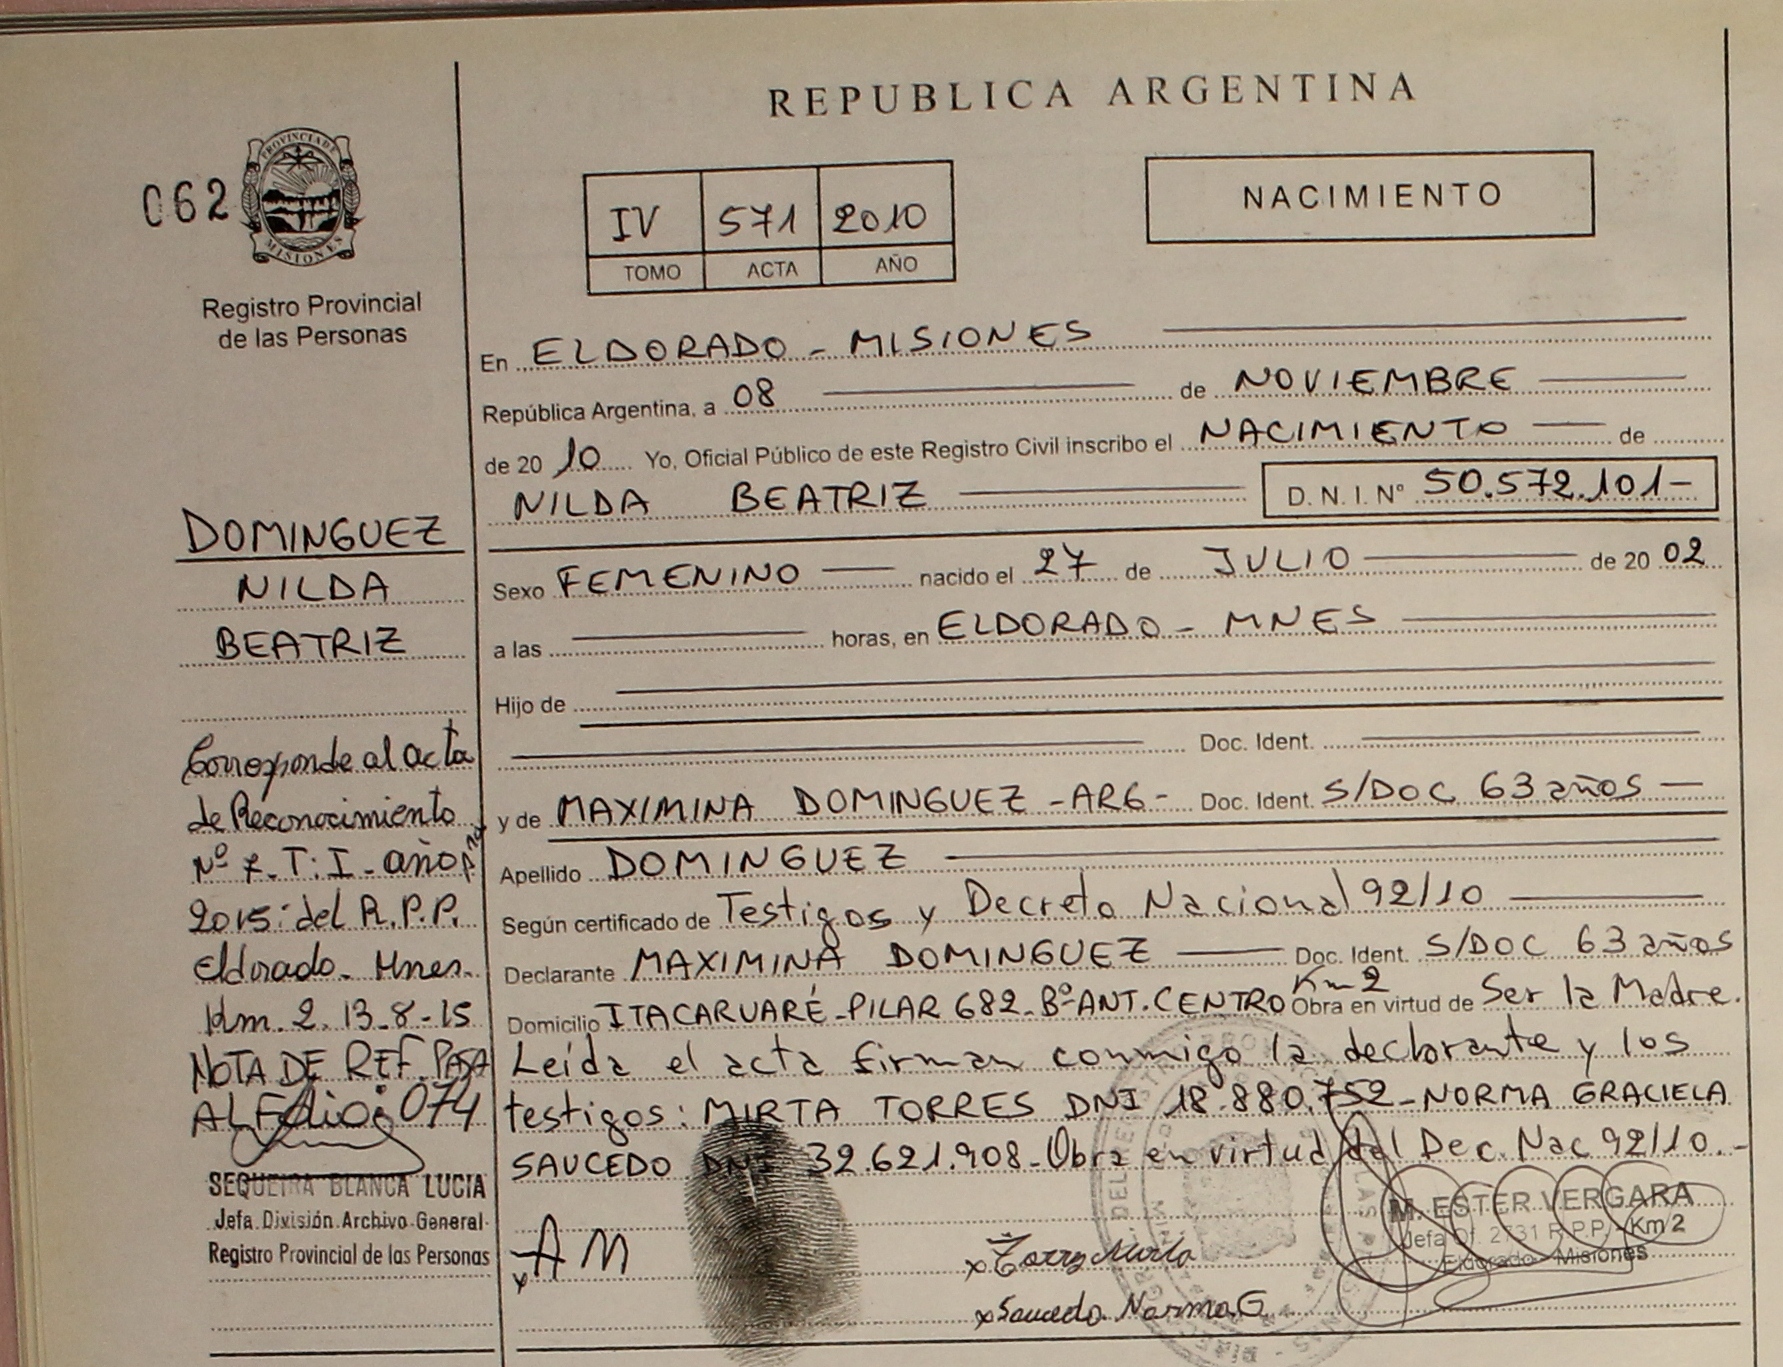 REPUBLICA ARGENTINA
062
PROVINCIA DE
MISIONES
Registro Provincial
de las Personas
IV 571 2010
TOMO ACTA AÑO
NACIMIENTO
En ELDORADO - MISIONES
República Argentina, a 08 de NOVIEMBRE
de 2010 Yo, Oficial Público de este Registro Civil inscribo el NACIMIENTO de
NILDA BEATRIZ D.N.I. Nº 50.572.101-
Sexo FEMENINO nacido el 27 de JULIO de 2002
a las horas, en ELDORADO - MNES
Hijo de
Doc. Ident.
y de MAXIMINA DOMINGUEZ -ARG- Doc. Ident. S/DOC 63 años
Apellido DOMINGUEZ
Según certificado de Testigos y Decreto Nacional 92/10
Declarante MAXIMINA DOMINGUEZ Doc. Ident. S/DOC 63 años
Km 2
Domicilio ITACARUARÉ-PILAR 682-Bº ANT. CENTRO Obra en virtud de Ser la Madre.
Leída el acta firman conmigo la declarante y los
testigos: MIRTA TORRES DNI 18.880.752-NORMA GRACIELA
SAUCEDO DNI 32.621.908-Obra en virtud del Dec. Nac 92/10.-
x AM
x Torres Mirta
x Saucedo Norma G
M. ESTER VERGARA
Jefa Of. 2731 R.P.P. Km 2
Eldorado - Misiones
DOMINGUEZ
NILDA
BEATRIZ
Corresponde al acta
de Reconocimiento
Nº 7. T: I - año
2015: del R.P.P.
Eldorado - Mnes.
Km. 2. 13-8-15
NOTA DE REF. PASA
AL Folio: 074
SEQUEIRA BLANCA LUCIA
Jefa División Archivo General
Registro Provincial de las Personas